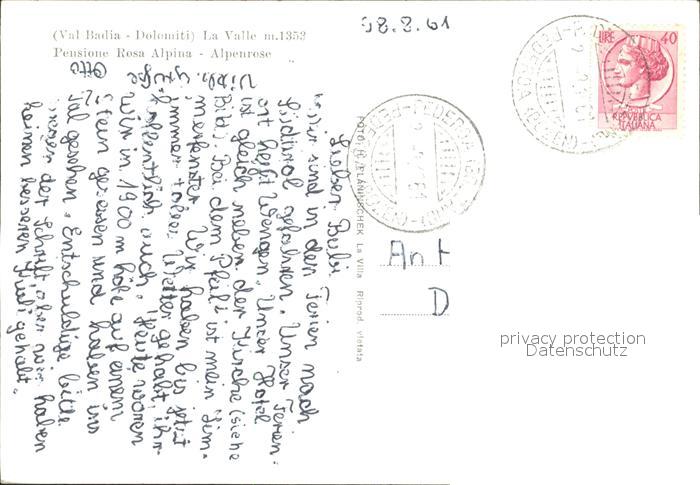 (Val Badia - Dolomiti) La Valle m.1353
Pensione Rosa Alpina - Alpenrose
8.61
LIRE 40
REPUBBLICA
ITALIANA
PEDEROA
Lieber
Wir sind in den Ferien nach
Südtirol gefahren. Unser Ferien-
ort heißt Wengen. Unser Hotel
ist gleich neben der Kirche (siehe
Bild). Bei dem Pfeil ist mein Zim-
merfenster. Wir haben bis jetzt
immer tolles Wetter gehabt, ihr
hoffentlich auch. Heute waren
wir in 1900 m höhe auf einem
Stein gesessen und haben ins
Tal gesehen. Entschuldige bitte
wegen der Schrift, aber wir haben
keinen besseren Kuli gehabt.
Viele Grüße
Otto
FOTO H. PLANINSCHEK La Villa Riprod. vietata
An
D
privacy protection
Datenschutz